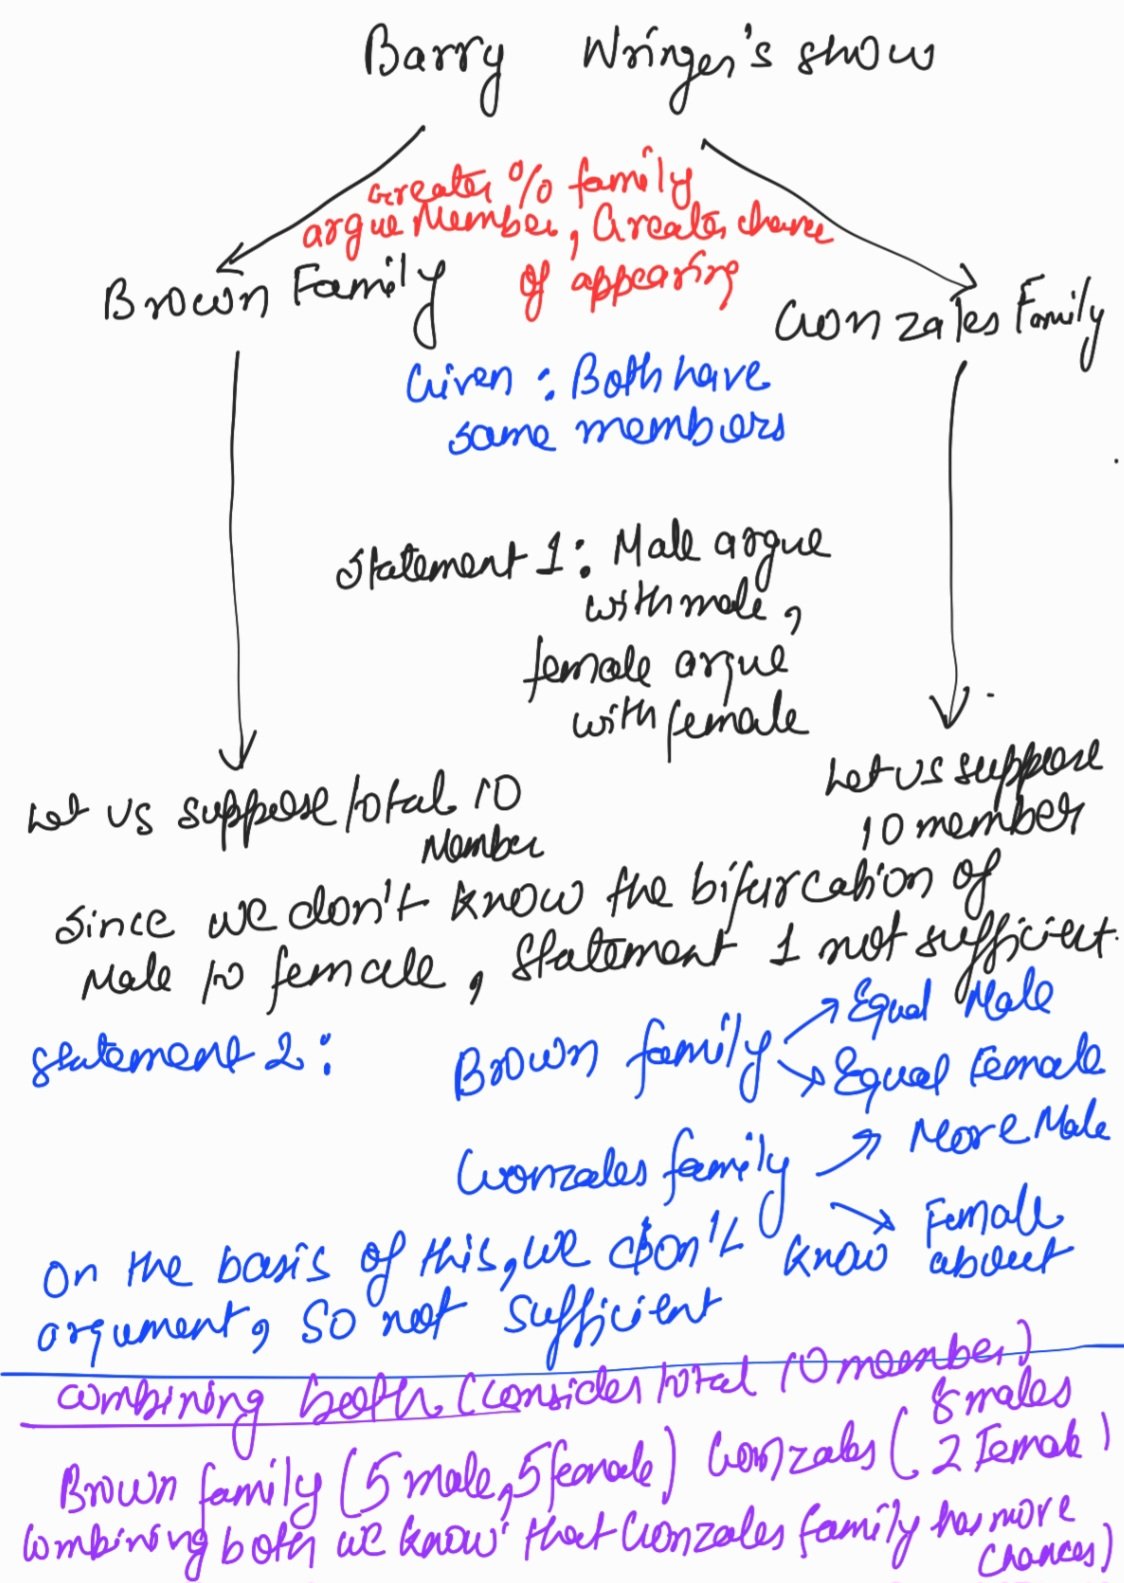 Barry Wringer's show
Greater % family
argue Member, Greater chance
of appearing
Brown Family
Gonzales Family
Given : Both have
same members
Statement 1: Male argue
with male,
female argue
with female
Let us suppose total 10
Member
Let us suppose
10 member
Since we don't know the bifurcation of
Male to female, Statement 1 not sufficient.
Statement 2:
Brown family → Equal Male
→ Equal Female
Gonzales family → More Male
→ Female
On the basis of this, we don't know about
argument, so not sufficient
Combining both (Consider total 10 member)
Brown family (5 male, 5 female) Gonzales ( 8 males
2 Female )
Combining both we know that Gonzales family has more
chances)